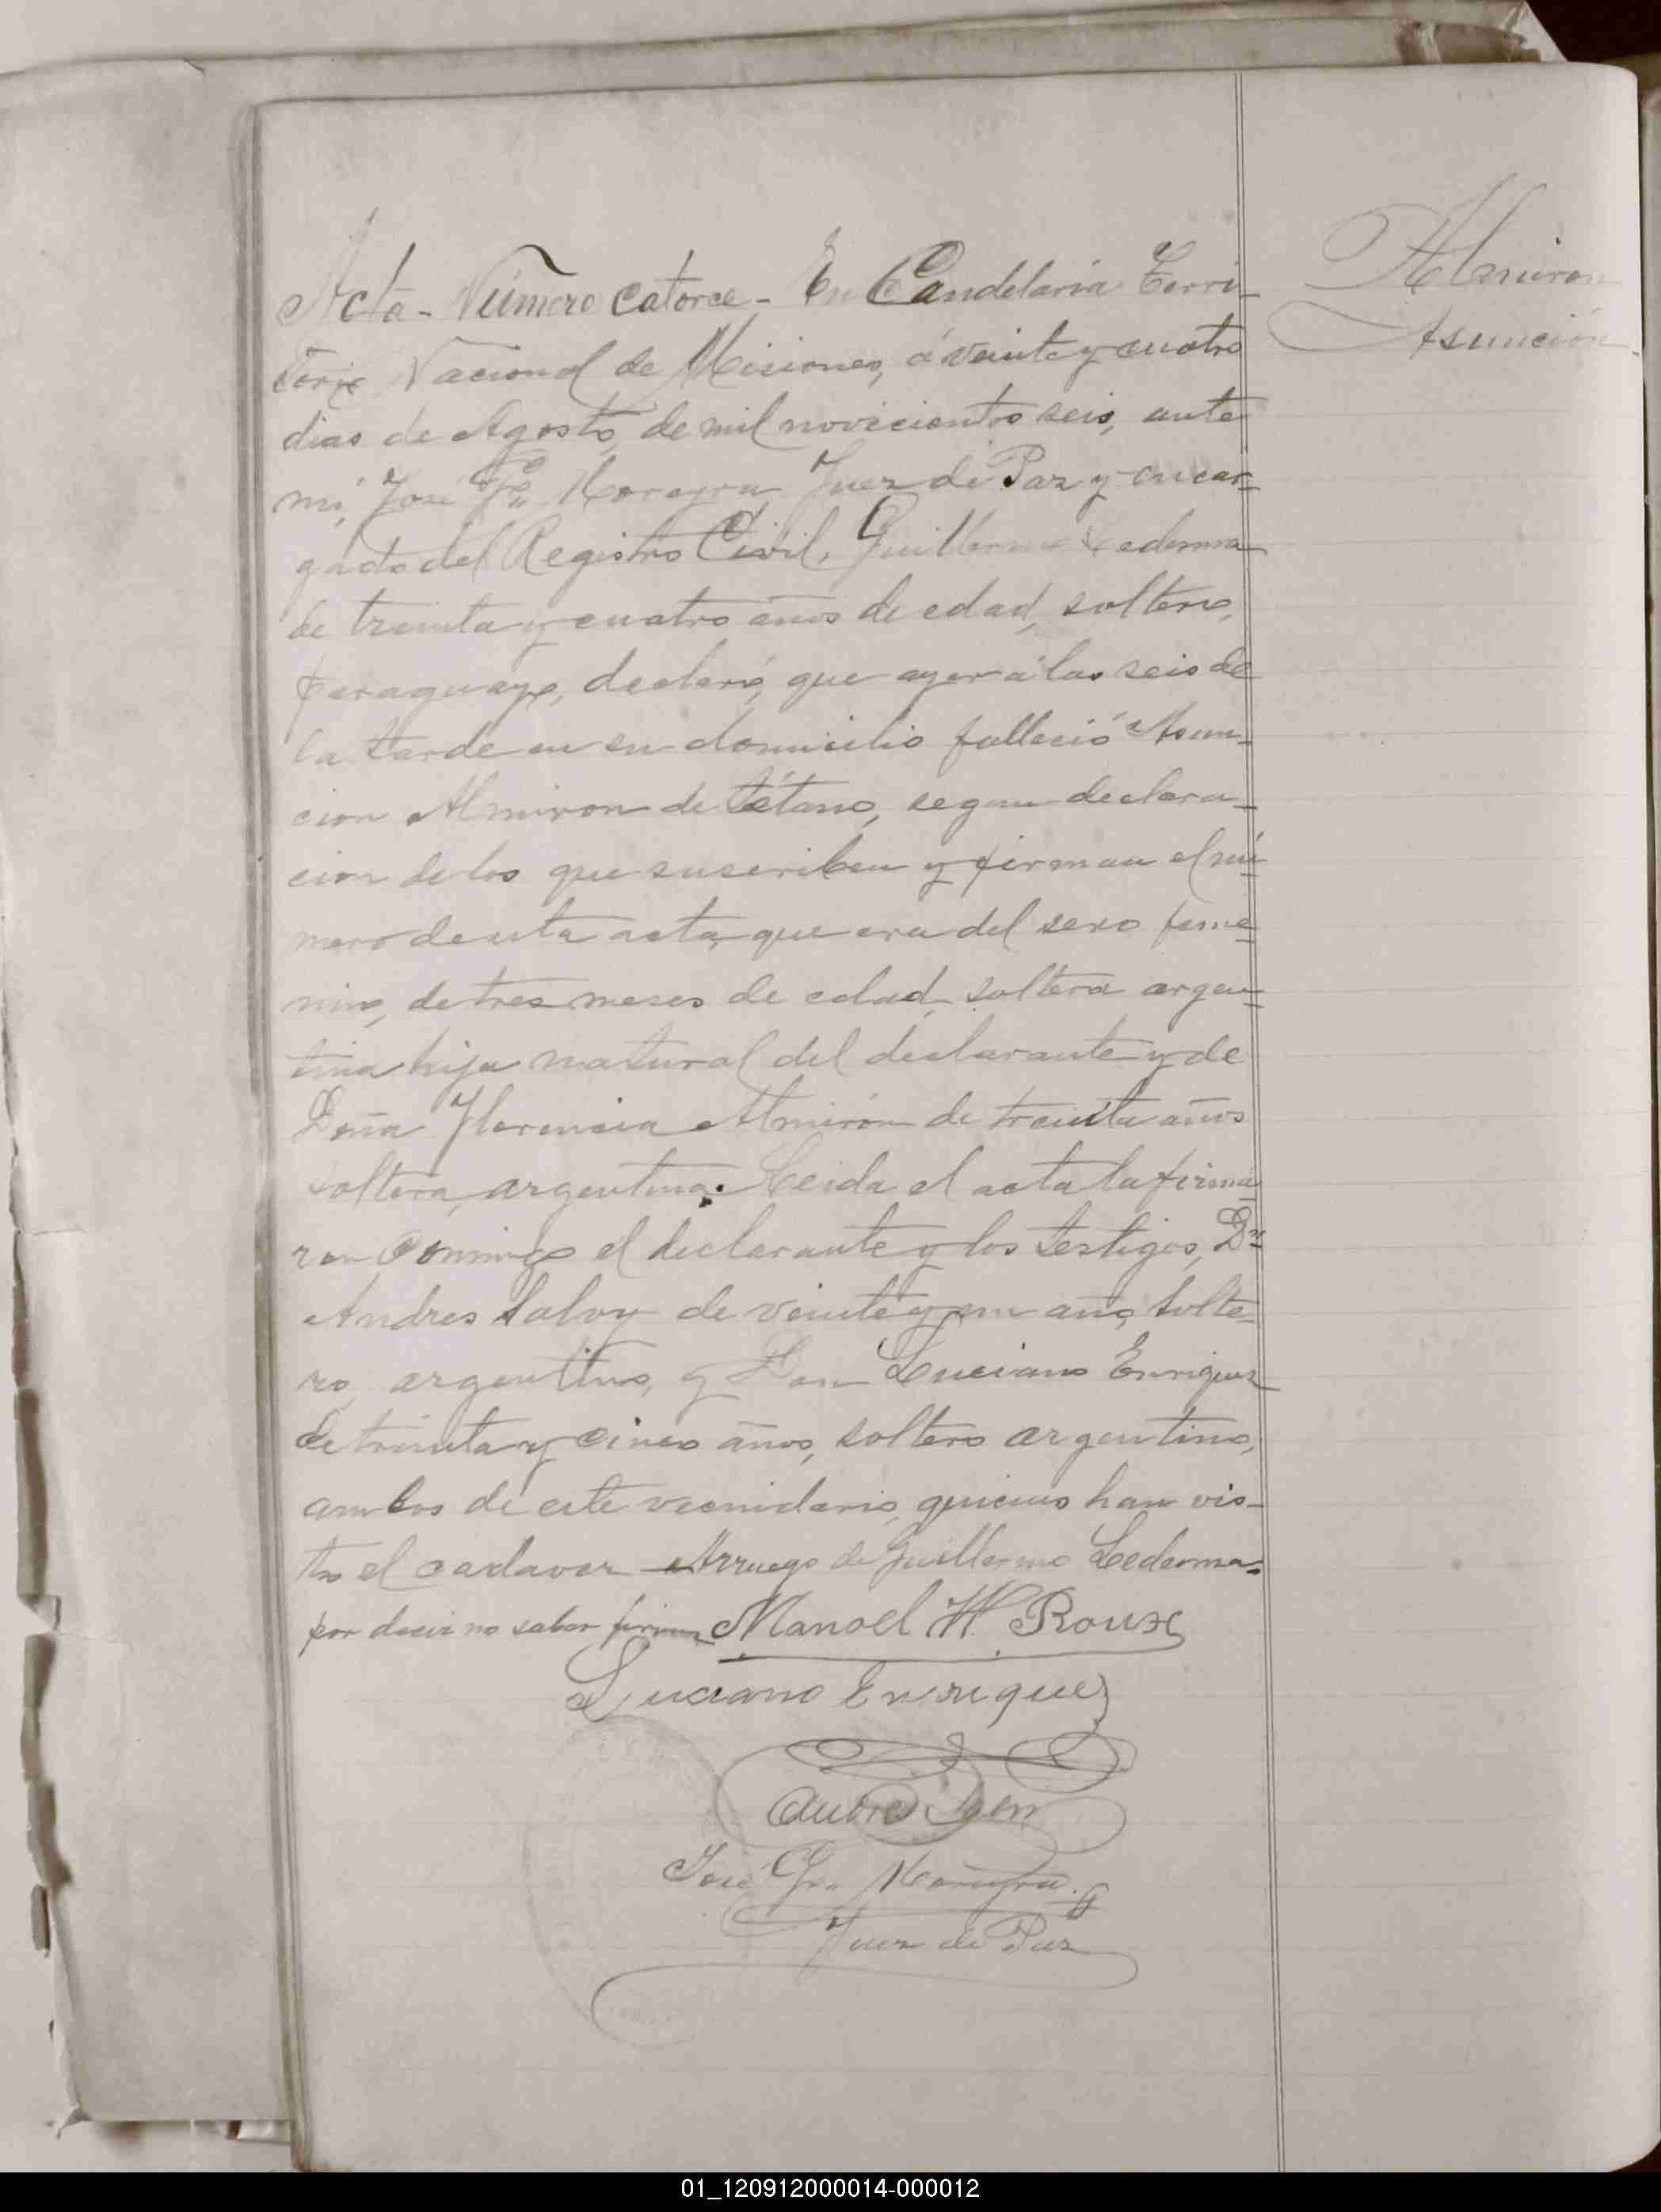 Almiron
Asunción
Acta - Número catorce - En Candelaria Terri-
torio Nacional de Misiones, á veinte y cuatro
dias de Agosto, de mil novecientos seis, ante
mi, José Moreyra Juez de Paz y encar-
gado del Registro Civil, Guillermo Ledesma
de treinta y cuatro años de edad, soltero,
paraguayo, declaró, que ayer á las seis de
la tarde en su domicilio falleció Asun-
cion Almiron de tétano, segun declara-
cion de los que suscriben y firman el nú-
mero de esta acta, que era del sexo feme-
nino, de tres meses de edad, soltera argen-
tina hija natural del declarante y de
Doña Florencia Almirón de treinta años
soltera, argentina. Leida el acta la firma-
ron conmigo el declarante y los testigos, Dn
Andres de veinte y un año, solte-
ro, argentino, y Don Luciano Enriquez
de treinta y cinco años, soltero argentino,
ambos de este vecindario, quienes han vis-
to el cadaver - Arruego de Guillermo Ledesma.
por decir no saber firmar Manoel H. Roux
Luciano Enriquez
José Moreyra
Juez de Paz
01_120912000014-000012